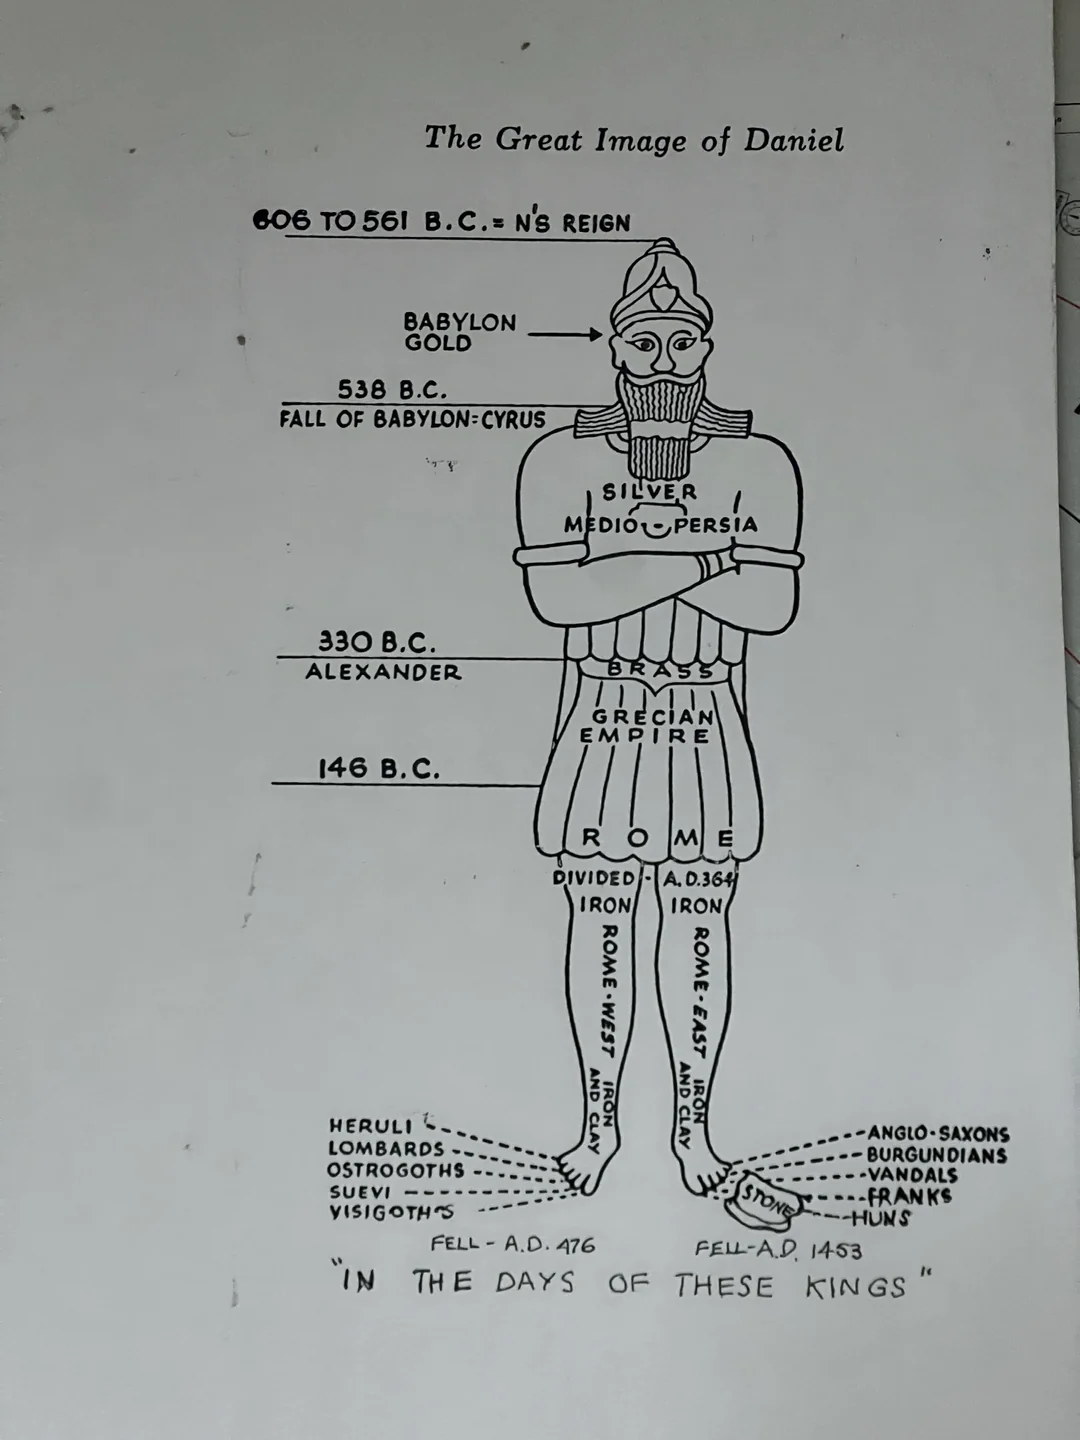 The Great Image of Daniel
606 TO 561 B.C. = N'S REIGN
BABYLON
GOLD
538 B.C.
FALL OF BABYLON = CYRUS
SILVER
MEDIO - PERSIA
330 B.C.
ALEXANDER
BRASS
GRECIAN
EMPIRE
146 B.C.
ROME
DIVIDED - A.D. 364
IRON IRON
ROME-WEST
IRON
AND CLAY
ROME-EAST
IRON
AND CLAY
HERULI
LOMBARDS
OSTROGOTHS
SUEVI
VISIGOTHS
ANGLO-SAXONS
BURGUNDIANS
VANDALS
FRANKS
HUNS
STONE
FELL - A.D. 476
FELL - A.D. 1453
"IN THE DAYS OF THESE KINGS"